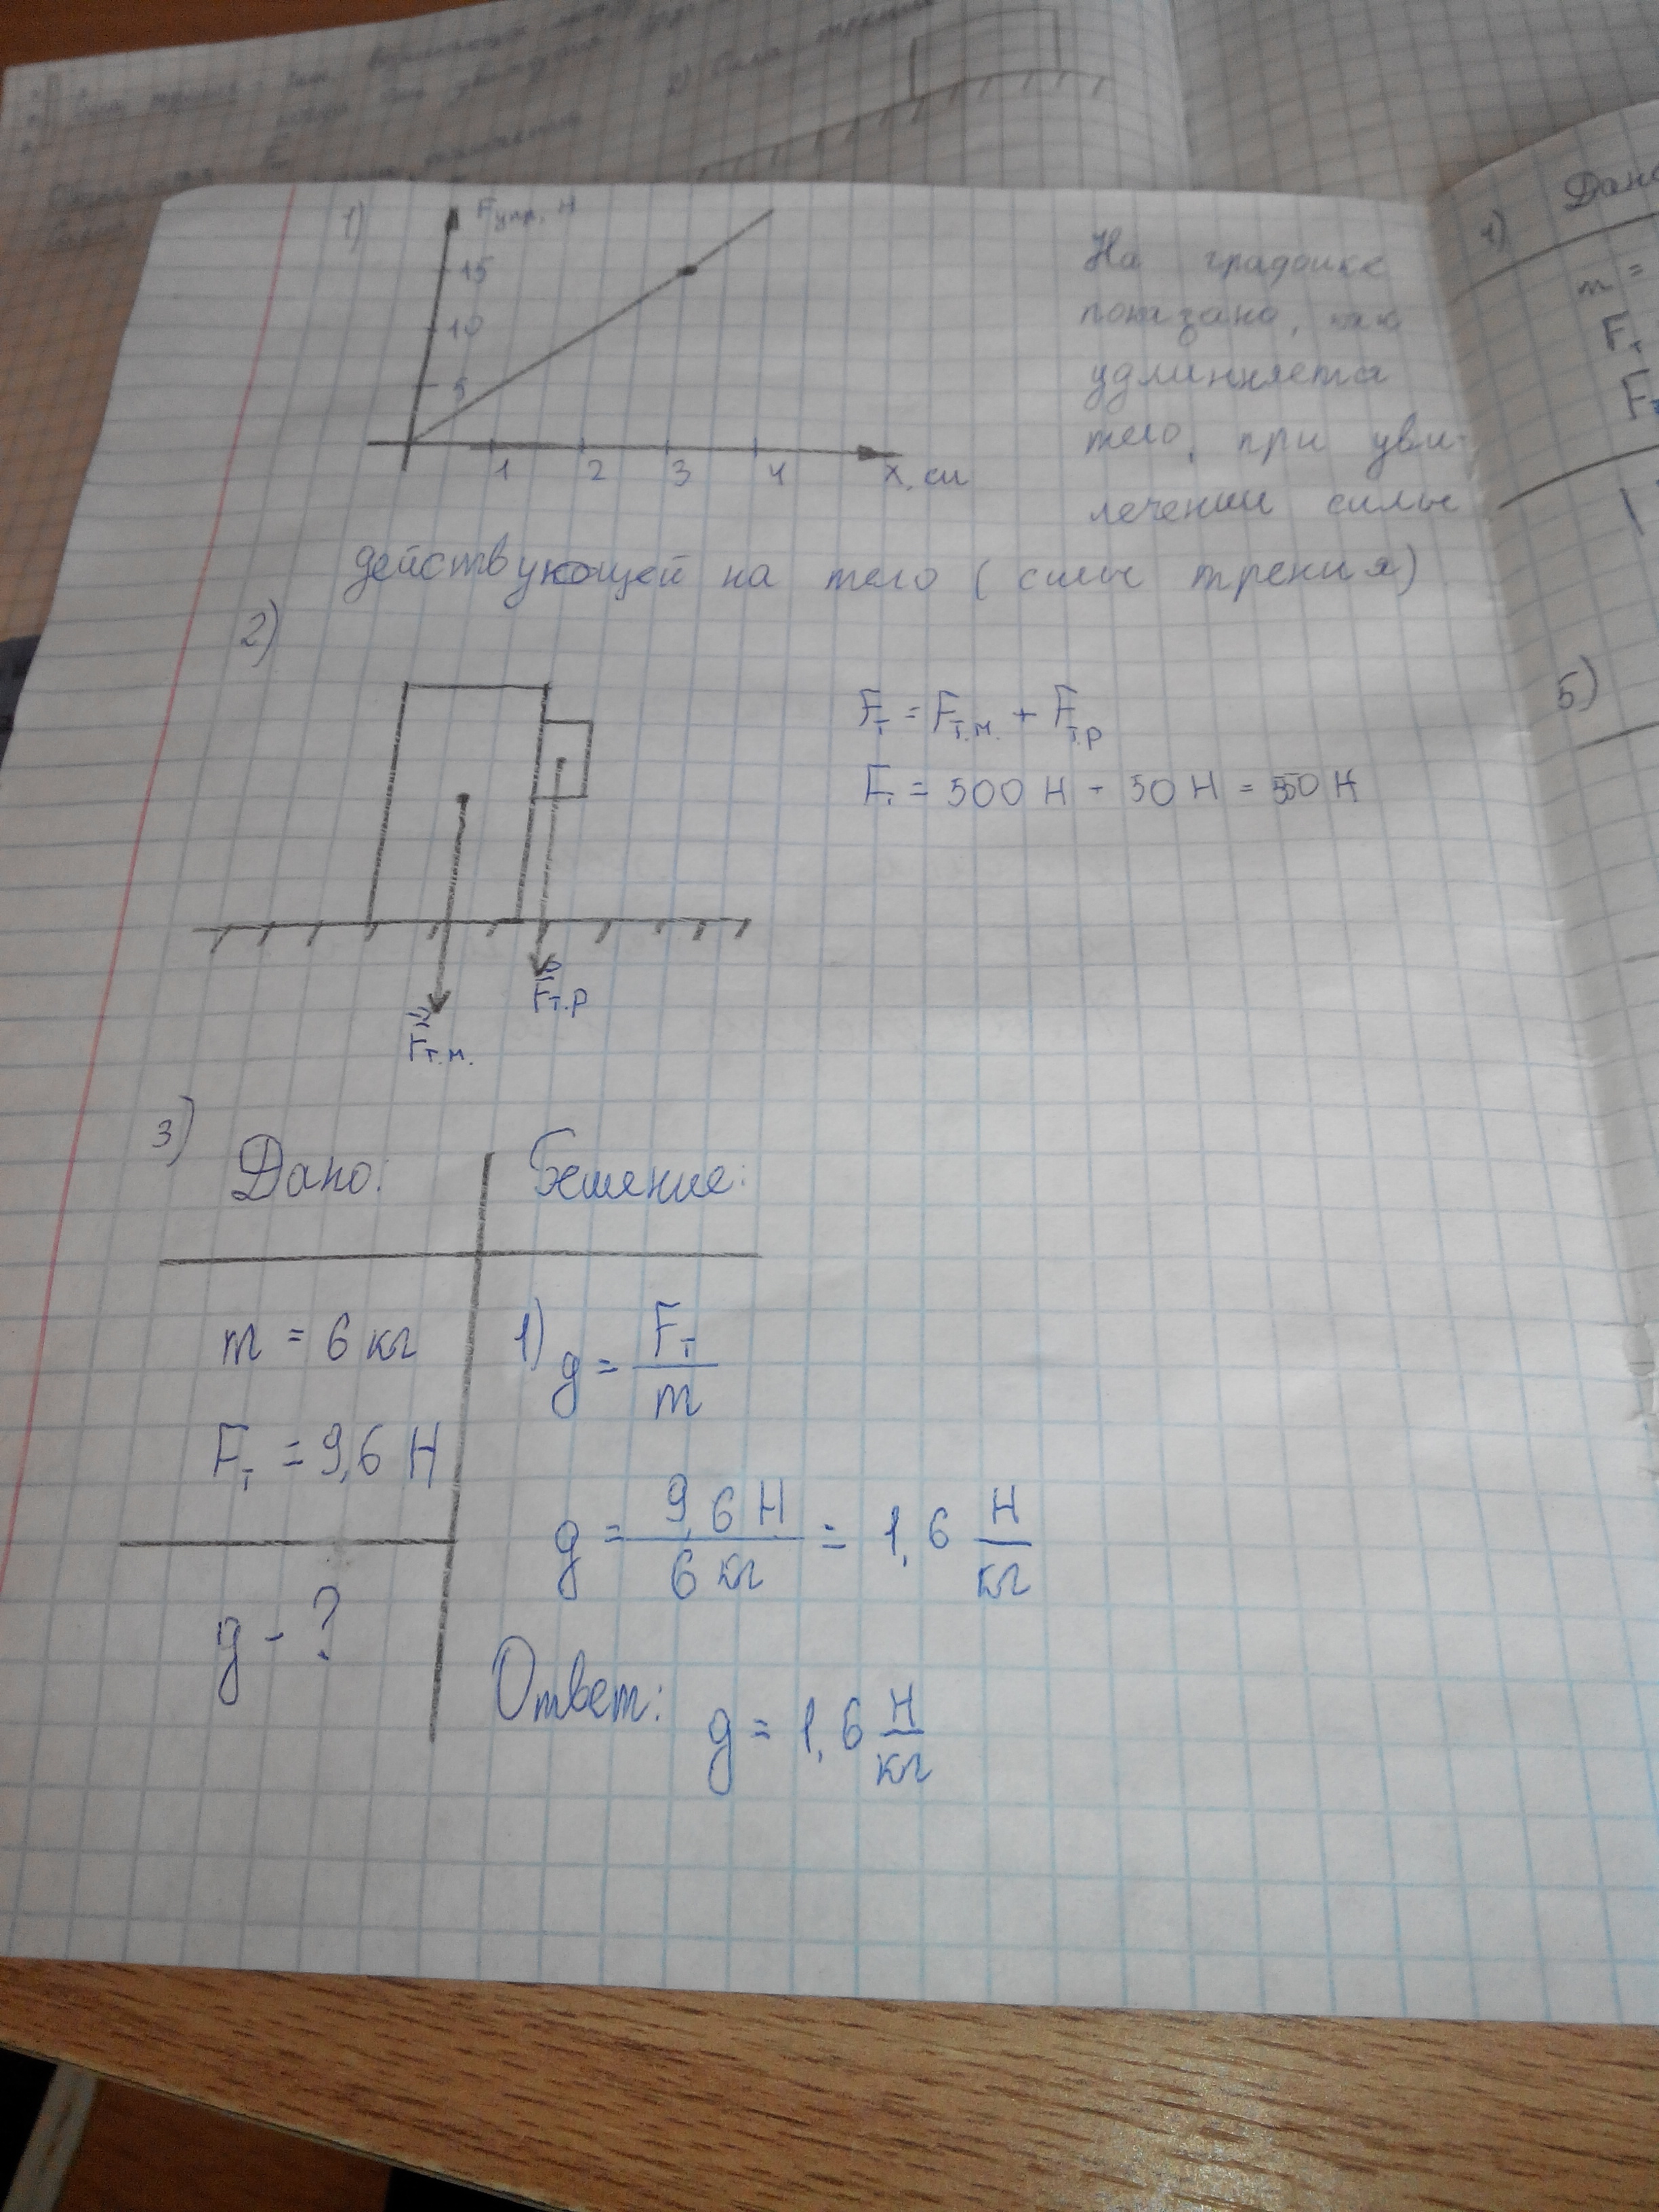 1)
Fупр. Н
15
10
5
1 2 3 4 X, см
На градоике
показано, как
удлинняета
тело, при уви-
лечении силы
действующей на тело ( силы трения)
2)
Fт = Fт.м. + Fт.р
Fт = 500 Н - 50 Н = 550 Н
Fт.р
Fт.м.
3)
Дано: Решение:
m = 6 кг
1) g = Fт / m
Fт = 9,6 Н
g = 9,6 Н / 6 кг = 1,6 Н / кг
g - ?
Ответ: g = 1,6 Н / кг
1) Дано
m =
Fт
5)